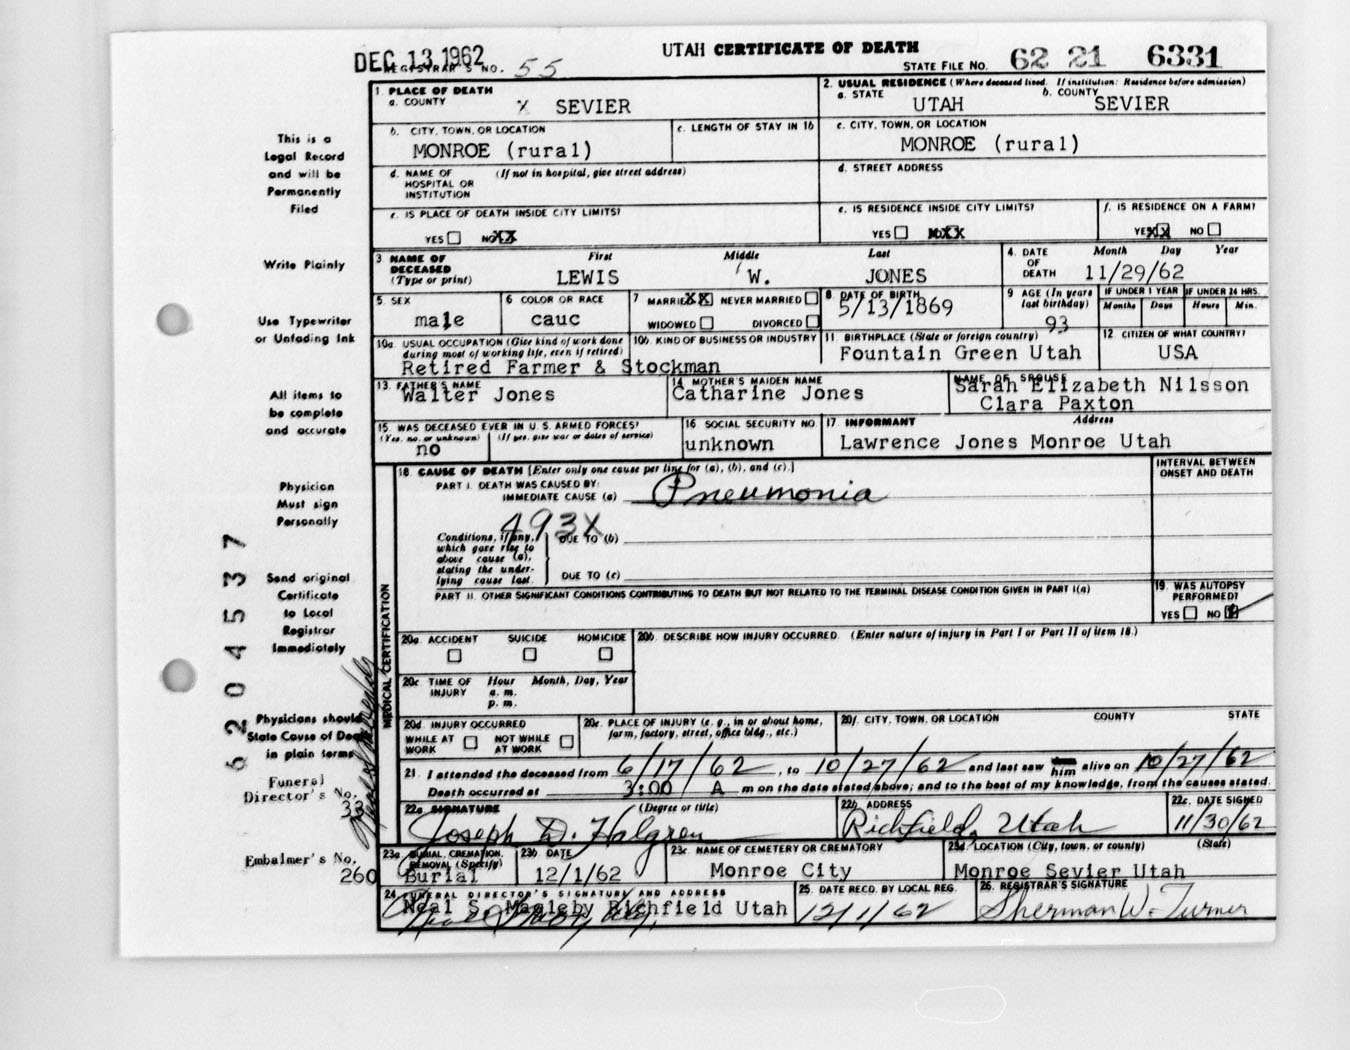 DEC 13 1962
UTAH CERTIFICATE OF DEATH
REGISTRAR'S NO. 55
STATE FILE NO. 62 21 6331
This is a
Legal Record
and will be
Permanently
Filed
Write Plainly
Use Typewriter
or Unfading Ink
All items to
be complete
and accurate
Physician
Must sign
Personally
Send original
Certificate
to Local
Registrar
Immediately
Physicians should
State Cause of Death
in plain terms
Funeral
Director's No.
33
Embalmer's No.
260
6204537
1. PLACE OF DEATH
a. COUNTY X SEVIER
2. USUAL RESIDENCE (Where deceased lived. If institution: Residence before admission)
a. STATE UTAH b. COUNTY SEVIER
b. CITY, TOWN, OR LOCATION
MONROE (rural)
c. LENGTH OF STAY IN 1b
c. CITY, TOWN, OR LOCATION
MONROE (rural)
d. NAME OF HOSPITAL OR INSTITUTION (If not in hospital, give street address)
d. STREET ADDRESS
e. IS PLACE OF DEATH INSIDE CITY LIMITS?
YES NO XX
e. IS RESIDENCE INSIDE CITY LIMITS?
YES NO XXX
f. IS RESIDENCE ON A FARM?
YES XX NO
3. NAME OF DECEASED (Type or print)
First Middle Last
LEWIS W. JONES
4. DATE OF DEATH Month Day Year
11/29/62
5. SEX
male
6. COLOR OR RACE
cauc
7. MARRIED XX NEVER MARRIED
WIDOWED DIVORCED
8. DATE OF BIRTH
5/13/1869
9. AGE (In years last birthday)
93
IF UNDER 1 YEAR
Months Days
IF UNDER 24 HRS.
Hours Min.
10a. USUAL OCCUPATION (Give kind of work done during most of working life, even if retired)
Retired Farmer & Stockman
10b. KIND OF BUSINESS OR INDUSTRY
11. BIRTHPLACE (State or foreign country)
Fountain Green Utah
12. CITIZEN OF WHAT COUNTRY?
USA
13. FATHER'S NAME
Walter Jones
14. MOTHER'S MAIDEN NAME
Catharine Jones
NAME OF SPOUSE
Sarah Elizabeth Nilsson
Clara Paxton
15. WAS DECEASED EVER IN U. S. ARMED FORCES?
(Yes, no, or unknown) (If yes, give war or dates of service)
no
16. SOCIAL SECURITY NO.
unknown
17. INFORMANT Address
Lawrence Jones Monroe Utah
MEDICAL CERTIFICATION
18. CAUSE OF DEATH [Enter only one cause per line for (a), (b), and (c).]
INTERVAL BETWEEN ONSET AND DEATH
PART I. DEATH WAS CAUSED BY:
IMMEDIATE CAUSE (a) Pneumonia
493X
Conditions, if any, which gave rise to above cause (a), stating the underlying cause last.
DUE TO (b)
DUE TO (c)
PART II. OTHER SIGNIFICANT CONDITIONS CONTRIBUTING TO DEATH BUT NOT RELATED TO THE TERMINAL DISEASE CONDITION GIVEN IN PART I(a)
19. WAS AUTOPSY PERFORMED?
YES NO
20a. ACCIDENT SUICIDE HOMICIDE
20b. DESCRIBE HOW INJURY OCCURRED. (Enter nature of injury in Part I or Part II of item 18.)
20c. TIME OF INJURY Hour Month, Day, Year
a. m.
p. m.
20d. INJURY OCCURRED
WHILE AT WORK NOT WHILE AT WORK
20e. PLACE OF INJURY (e. g., in or about home, farm, factory, street, office bldg., etc.)
20f. CITY, TOWN, OR LOCATION COUNTY STATE
21. I attended the deceased from 6/17/62, to 10/27/62 and last saw him alive on 10/27/62
Death occurred at 3:00 A m on the date stated above; and to the best of my knowledge, from the causes stated.
22a. SIGNATURE (Degree or title)
Joseph D. Halgren
22b. ADDRESS
Richfield, Utah
22c. DATE SIGNED
11/30/62
23a. BURIAL, CREMATION, REMOVAL (Specify)
Burial
23b. DATE
12/1/62
23c. NAME OF CEMETERY OR CREMATORY
Monroe City
23d. LOCATION (City, town, or county) (State)
Monroe Sevier Utah
24. FUNERAL DIRECTOR'S SIGNATURE AND ADDRESS
Neal S. Magleby Richfield Utah
25. DATE RECD. BY LOCAL REG.
12/1/62
26. REGISTRAR'S SIGNATURE
Sherman W. Turner